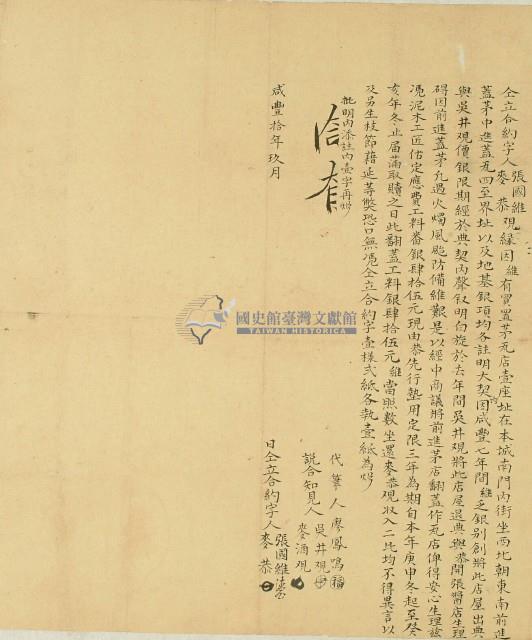 仝立合約字人張國維麥恭观緣因維有買置茅瓦店壹座址在本城南門內街坐西北朝東南前進
蓋茅中進蓋瓦四至界址以及地基銀項均各註明大契內因咸豐七年間維乏銀別創將此店屋出典
與吳井观價銀限期經於典契內聲叙明白旋於去年間吳井观將此店屋退典與恭開張醬店生理
碍因前進蓋茅凢遇火燭風颱防備維艱是以經中商議將前進茅店翻蓋作瓦店俾得安心生理茲
憑泥木工匠估定應費工料番銀肆拾伍元現由恭先行墊用定限三年為期自本年庚申冬起至癸
亥年冬止届滿取贖之日此翻蓋工料銀肆拾伍元維當照數坐還麥恭观收入二比均不得異言以
及另生枝節藉延等弊恐口無憑仝立合約字壹樣弍紙各執壹紙為炤
批明內添註內壹字再炤
合 有
代筆人廖鳳鳴
說合知見人吳井观
麥酒观
咸豐拾年玖月 日仝立合約字人張國維
麥恭
國史館臺灣文獻館
TAIWAN HISTORICA